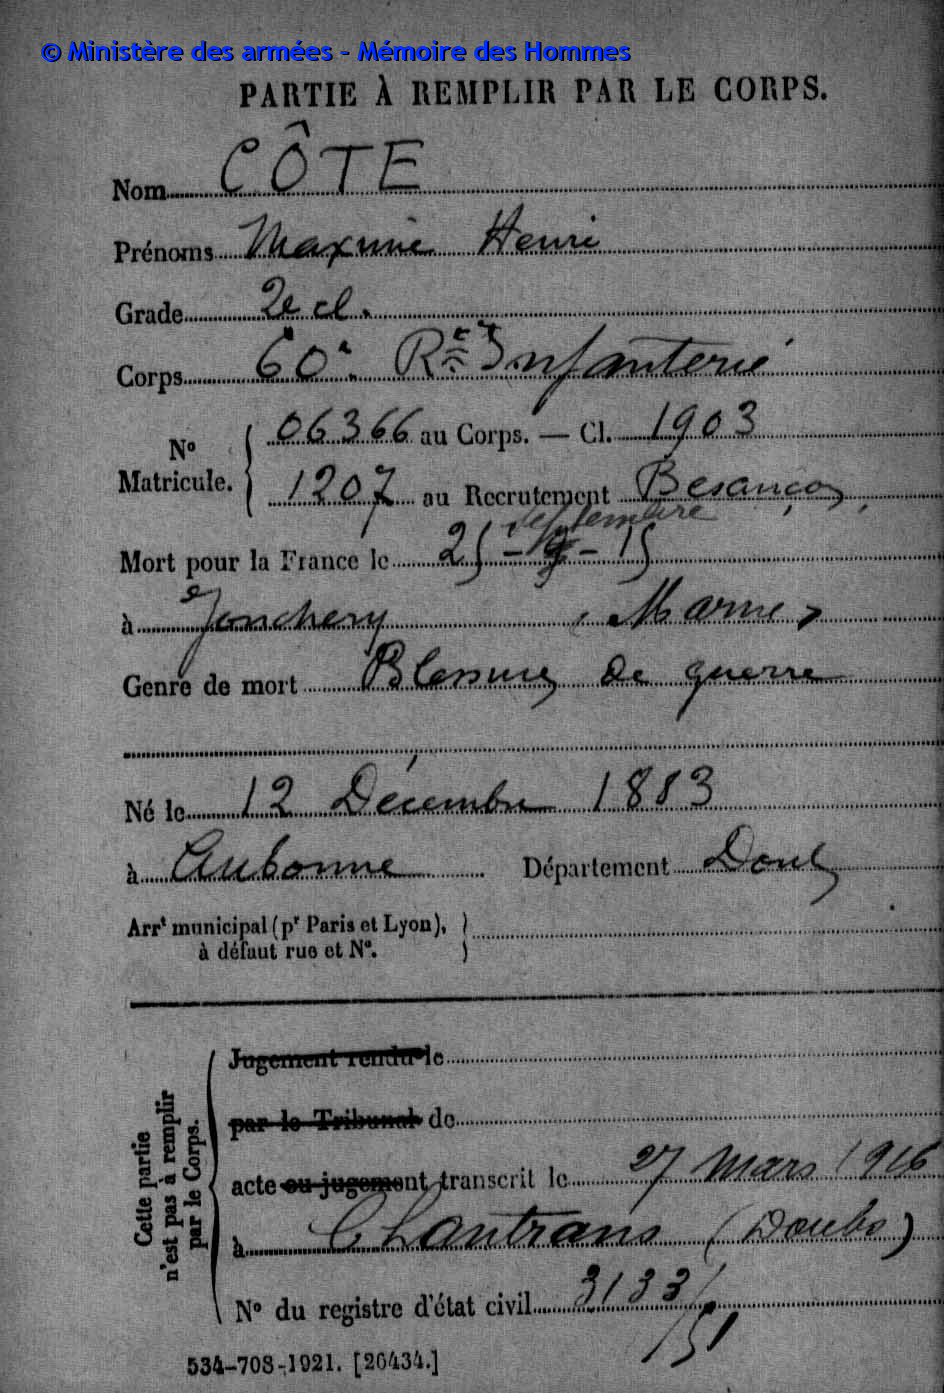 © Ministère des armées - Mémoire des Hommes
PARTIE À REMPLIR PAR LE CORPS.
Nom CÔTE
Prénoms Maxime Henri
Grade 2e cl.
Corps 60e. Rt Infanterie
N° Matricule. 06366 au Corps. — Cl. 1903
1207 au Recrutement Besançon
septembre
Mort pour la France le 25 - 9 - 15
à Jonchery (Marne)
Genre de mort Blessures de guerre
Né le 12 Décembre 1883
à Aubonne Département Doubs
Arrt municipal (pr Paris et Lyon),
à défaut rue et N°.
Cette partie n'est pas à remplir par le Corps.
Jugement rendu le
par le Tribunal de
acte ou jugement transcrit le 27 Mars 1916
à Chantrans (Doubs)
N° du registre d'état civil 3133/
151
534-708-1921. [26434.]